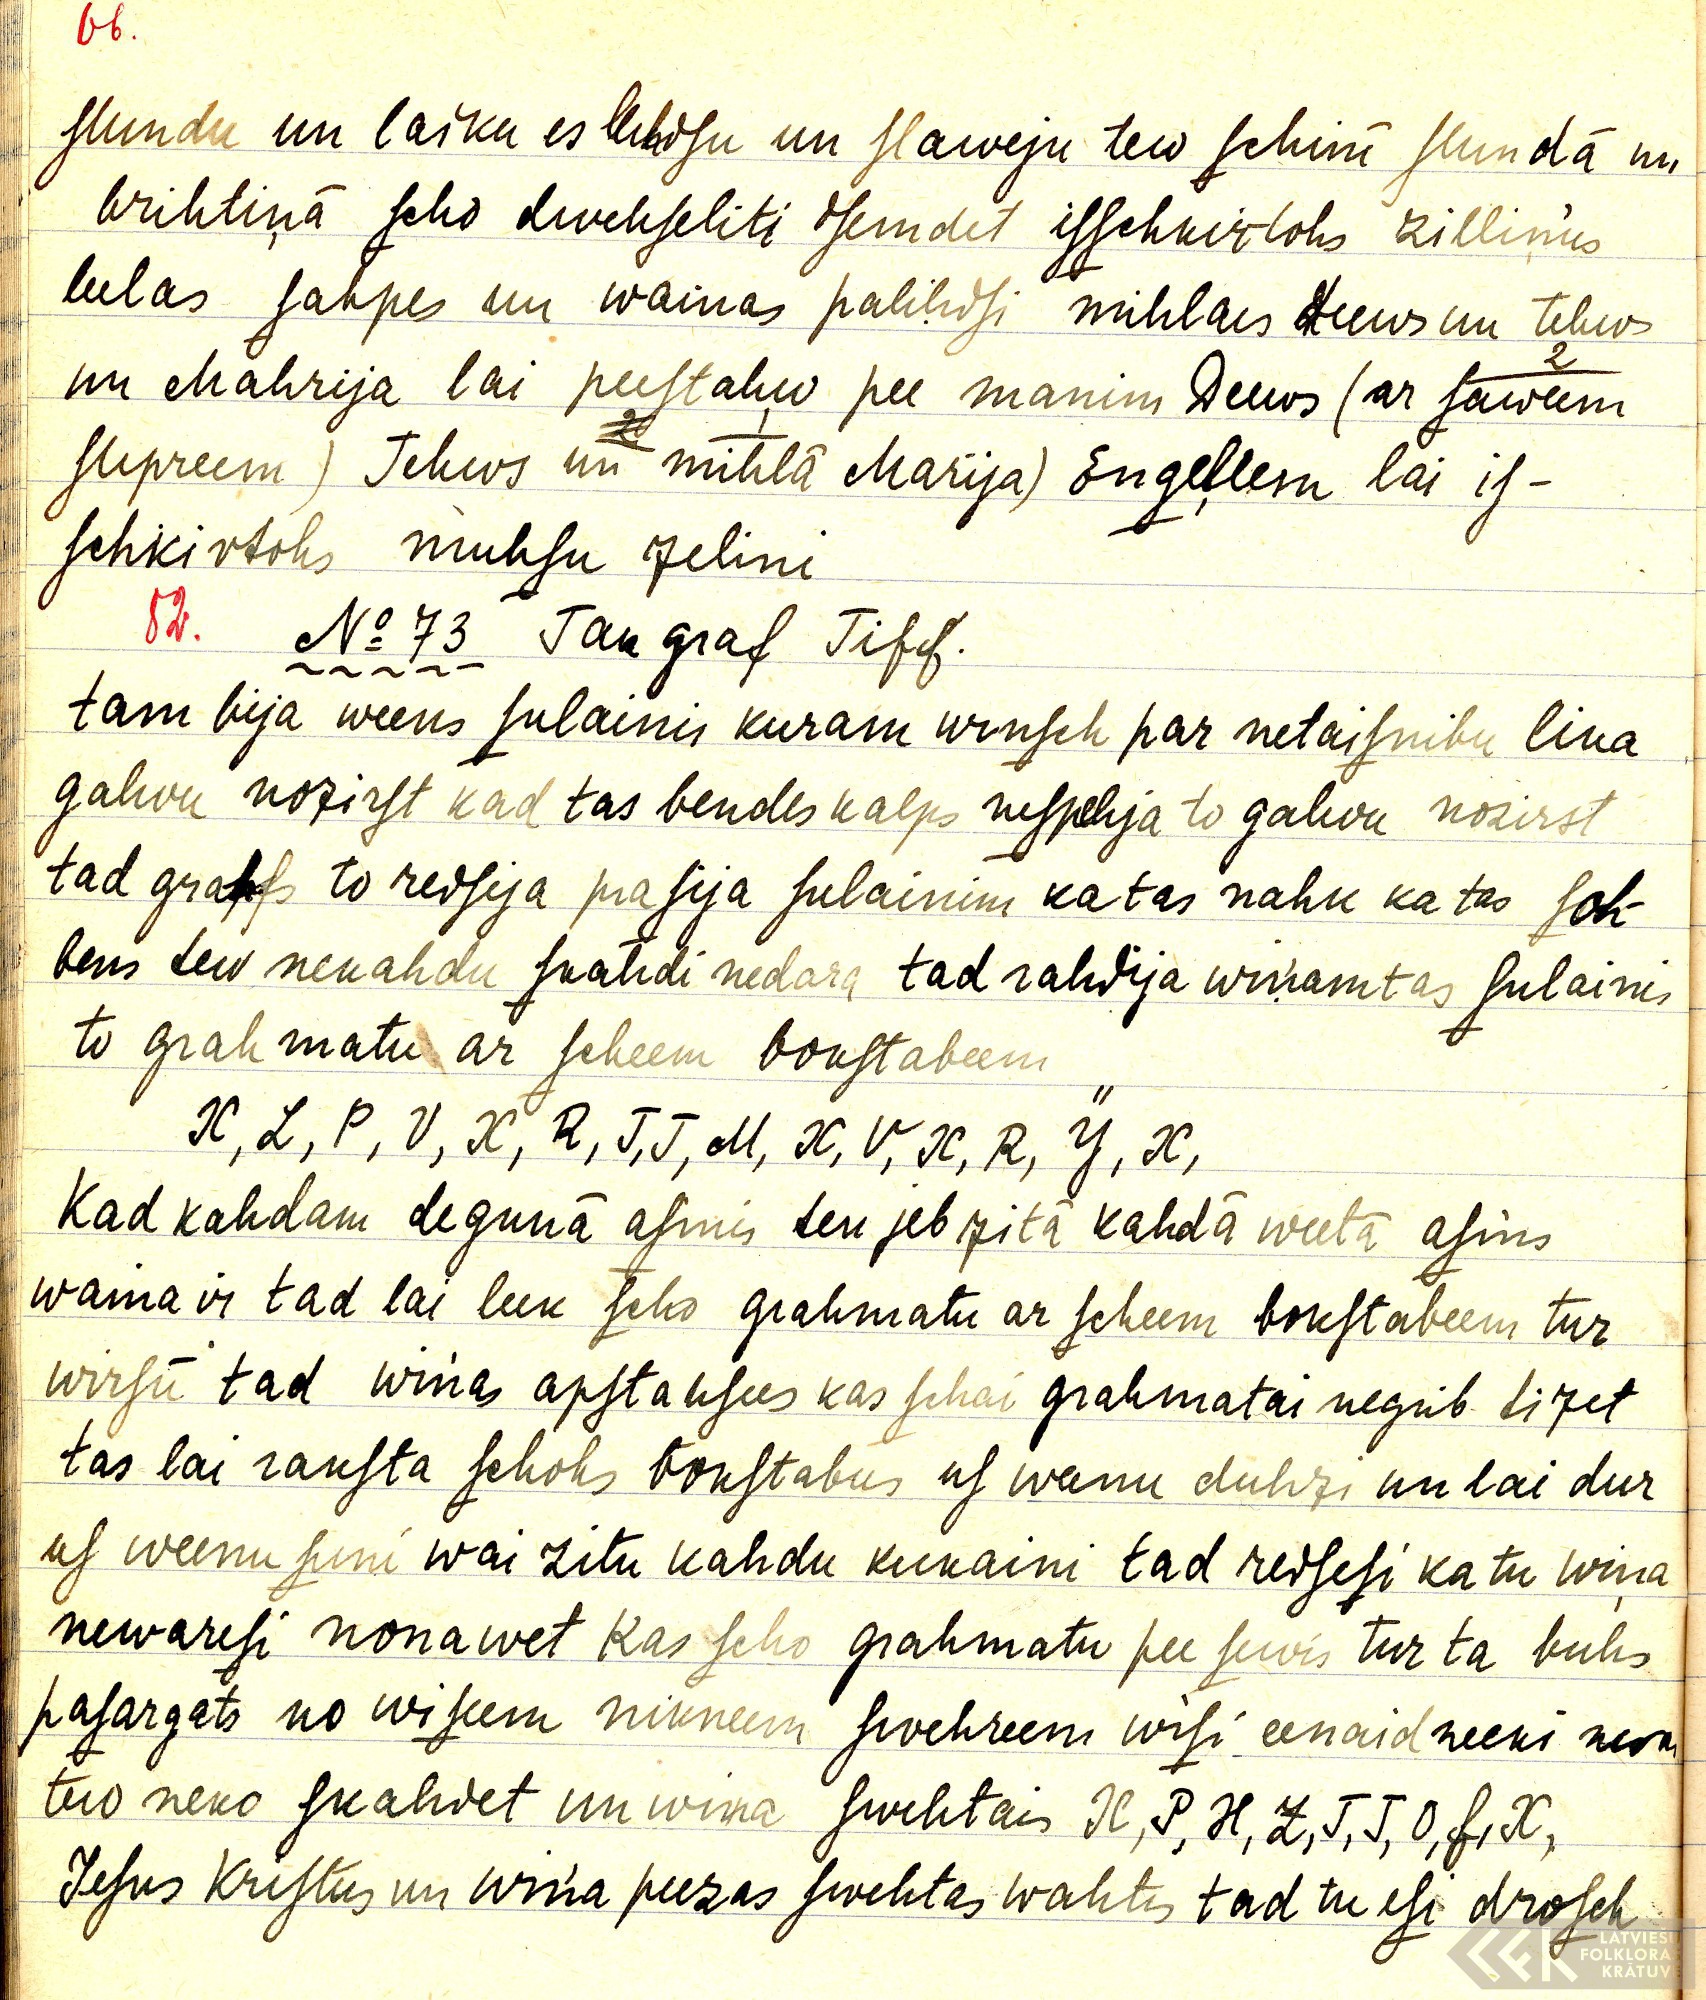 66.
stundu un laiku es luhdsu un slaweju tew schinī stundā un
brihtiņā scho dwehseliti dsemdet isschkirtohs zilliņus
leelas sahpes un wainas palihdsi mihlais Deews un tehws
un Mahrija lai peestahw pee manim Deews (ar saweem 2
stipreem) Tehws un mihlā Marija) Engeļļem lai is-
schkirtohs muhsu zelini
82. No 73 Tau graf Tiff.
tam bija weens sulainis kuram winsch par netaisnibu lika
galwu nozirst kad tas bendes kalps nespehja to galwu nozirst
tad grahfs to redseja prasija sulainim ka tas nahk ka tas soh-
bens tew nekahdu skahdi nedara tad rahdija wiņam tas sulainis
to grahmatu ar scheem bokstabeem
X, L, P, V, X, R, T, T, M, X, V, X, R, Ÿ, X,
Kad kahdam degunā asinis tek jeb zitā kahdā weetā asins
waina ir tad lai leek scho grahmatu ar scheem bokstabeem tur
wirsū tad wiņas apstahsees kas schai grahmatai negrib tizet
tas lai raksta schohs bokstabus us weenu duhzi un lai dur
us weenu suni wai zitu kahdu kukaini tad redsesi ka tu wiņa
newaresi nonawet Kas scho grahmatu pee sewis tur ta buhs
pasargats no wiseem nikneem swehreem wisi eenaidneeki newar
tew neko skahdet un wiņa swehtais X, P, H, Z, T, T, O, f, X,
Jesus Kristus un wiņa peezas swehtas wahtis tad tu esi drosch
LATVIEŠU
FOLKLORAS
KRĀTUVE